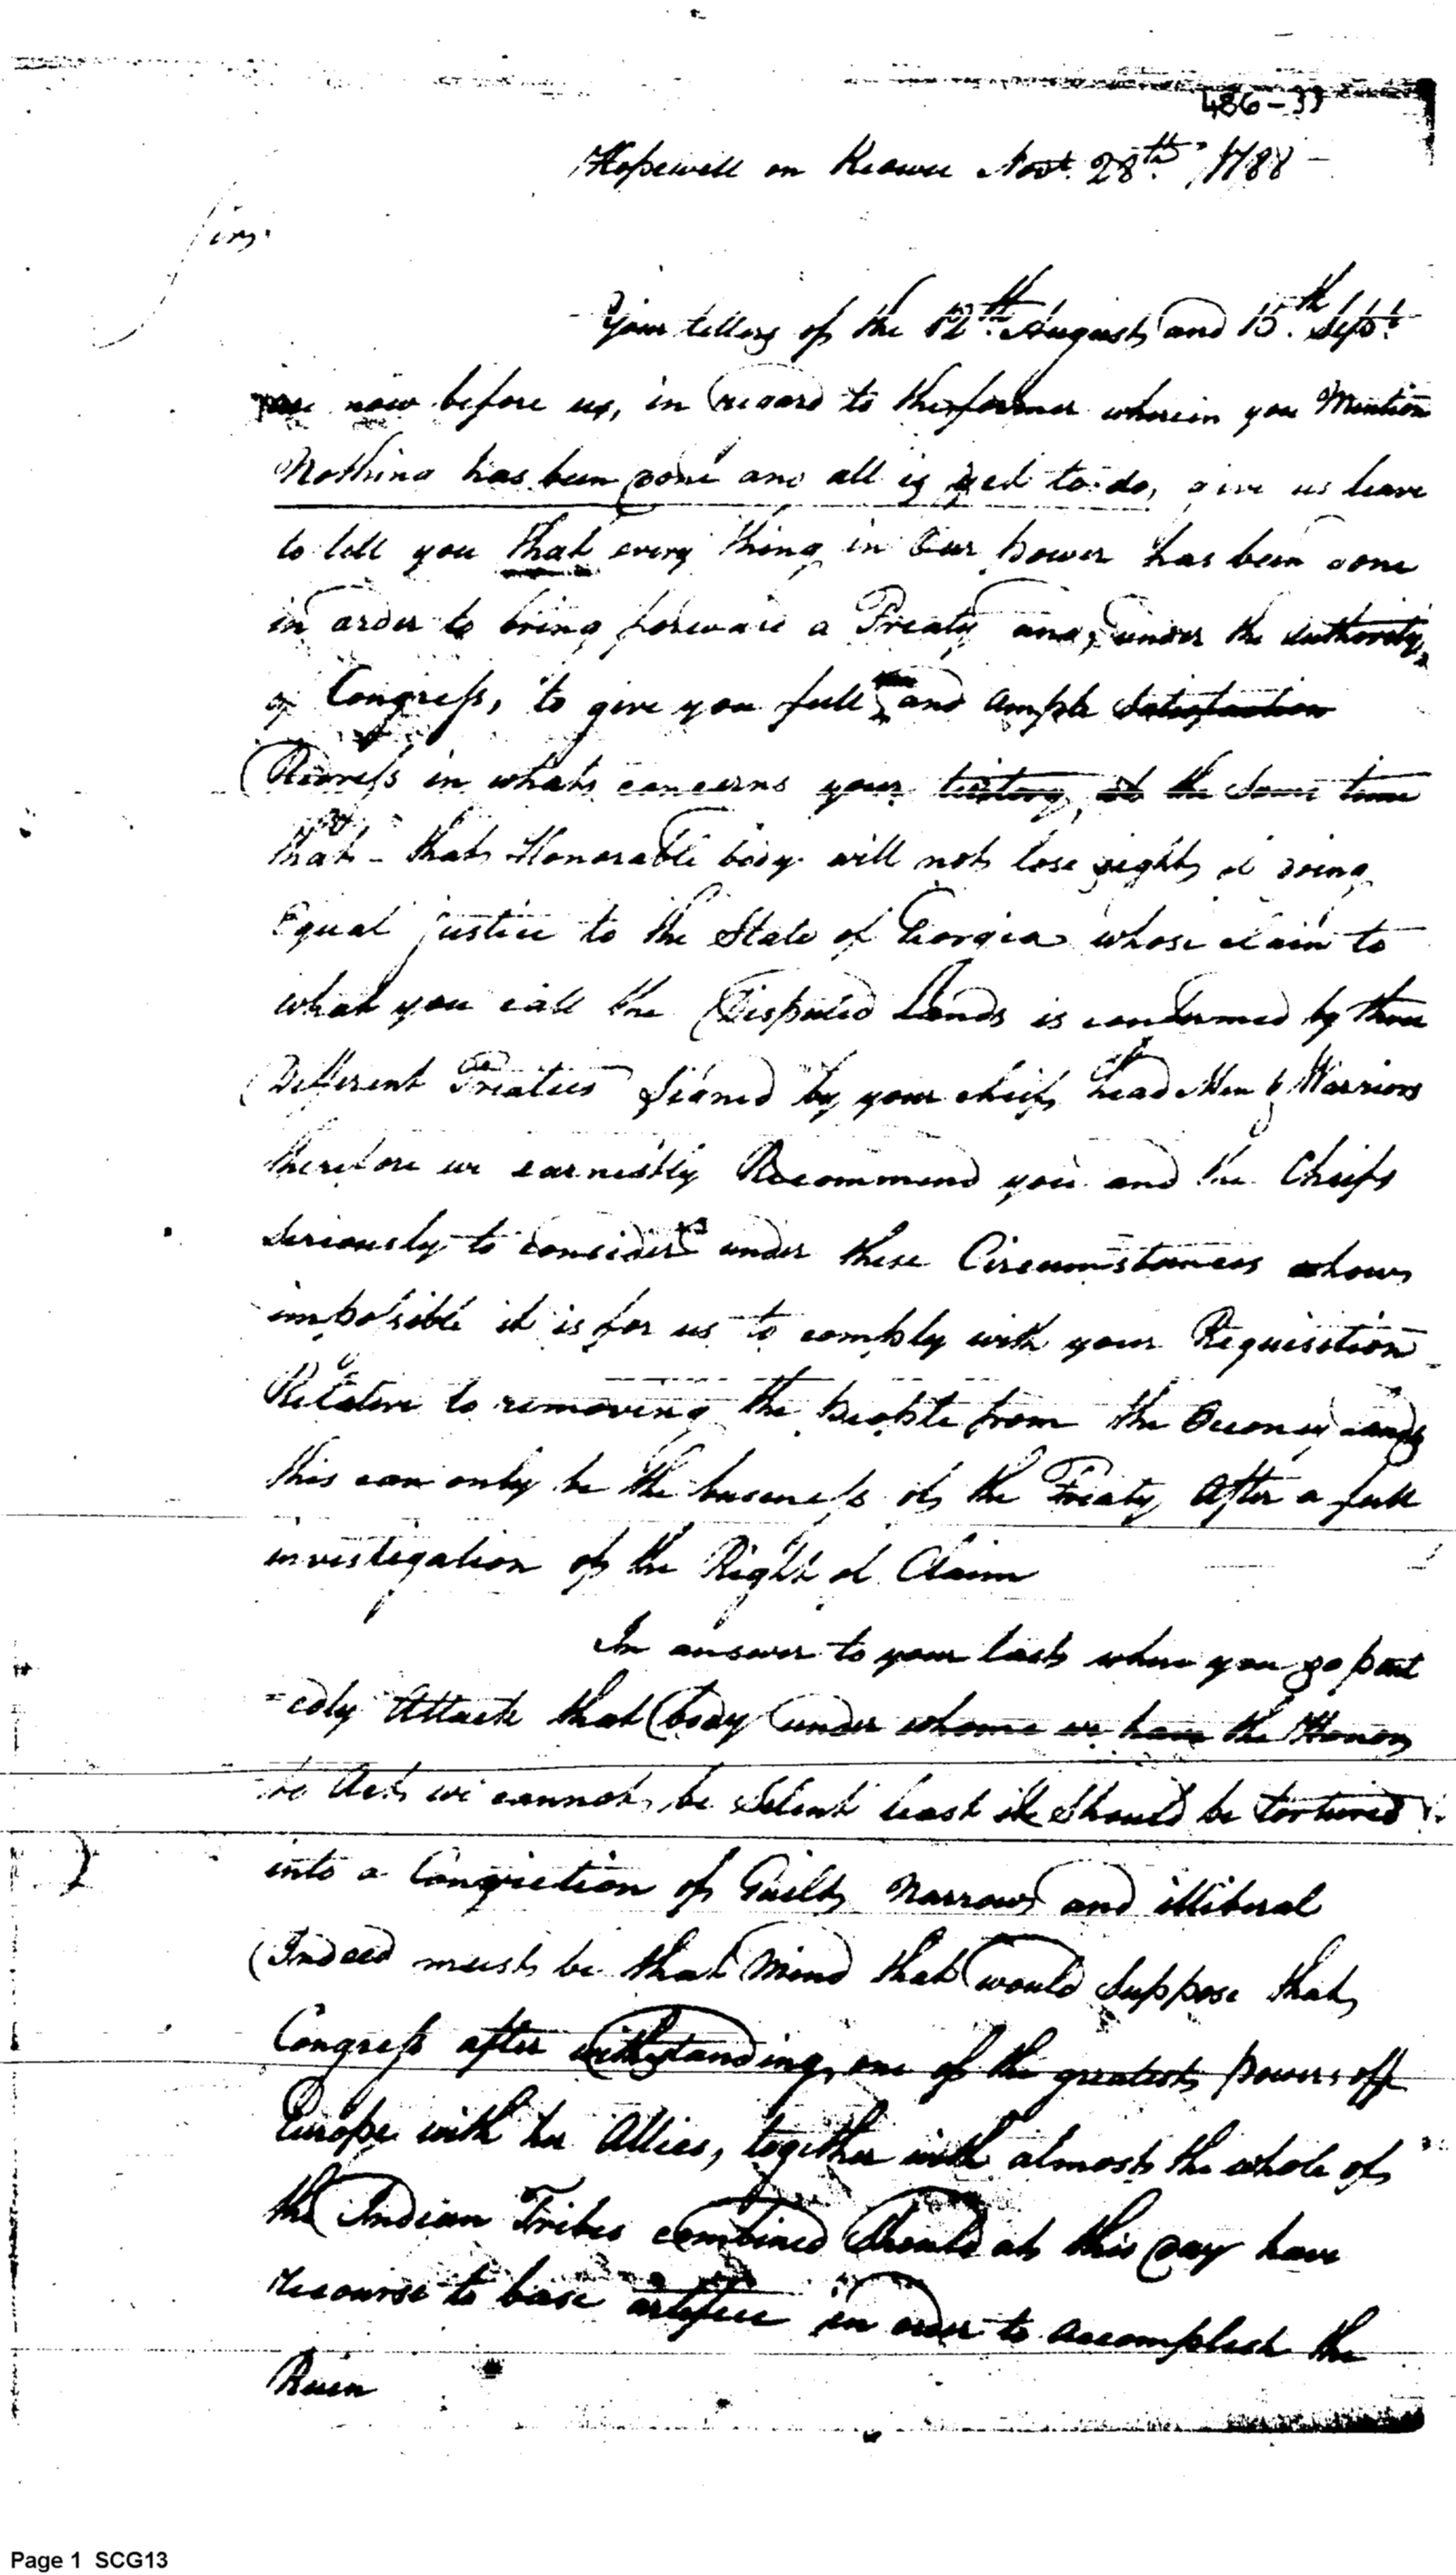 486-33
Hopewell on Keowee Novr. 28th, 1788 -
Sirs.
Your letters of the 12th. August, and 15.th Sept.
are now before us, in regard to the former wherein you Mention
Nothing has been done and all is yet to do, give us leave
to tell you that every thing in Our power has been done
in order to bring forward a Treaty and, under the Authority,
of Congress, to give you full and ample Satisfaction
Redress in what concerns your teritory, at the same time
that - that Honorable body will not lose sight of doing
Equal justice to the State of Georgia whose claim to
what you call the Disputed Lands is condermed by three
Different Treaties Signed by your chiefs, head Men & Warriors
therefore we earnestly Recommend you and the Chiefs
Seriously to consider under these Circumstances how
impossible it is for us to comply with your Requisition
Relative to removing the people from the Oconey Lands
this can only be the business of the Treaty After a full
investigation of the Right of Claim
In answer to your last where you so point
=edly Attack that body under whome we have the Honor
to Act, we cannot be Silent least it Should be tortured
into a Conviction of Guilt, Narrow and illiberal
Indeed must be that Mind that would Suppose that
Congress after withstanding one of the greatest powers off
Europe with her Allies, together with almost the whole of
the Indian Tribes combined Should at this day have
recourse to base artifice in order to accomplish the
Ruin
Page 1 SCG13